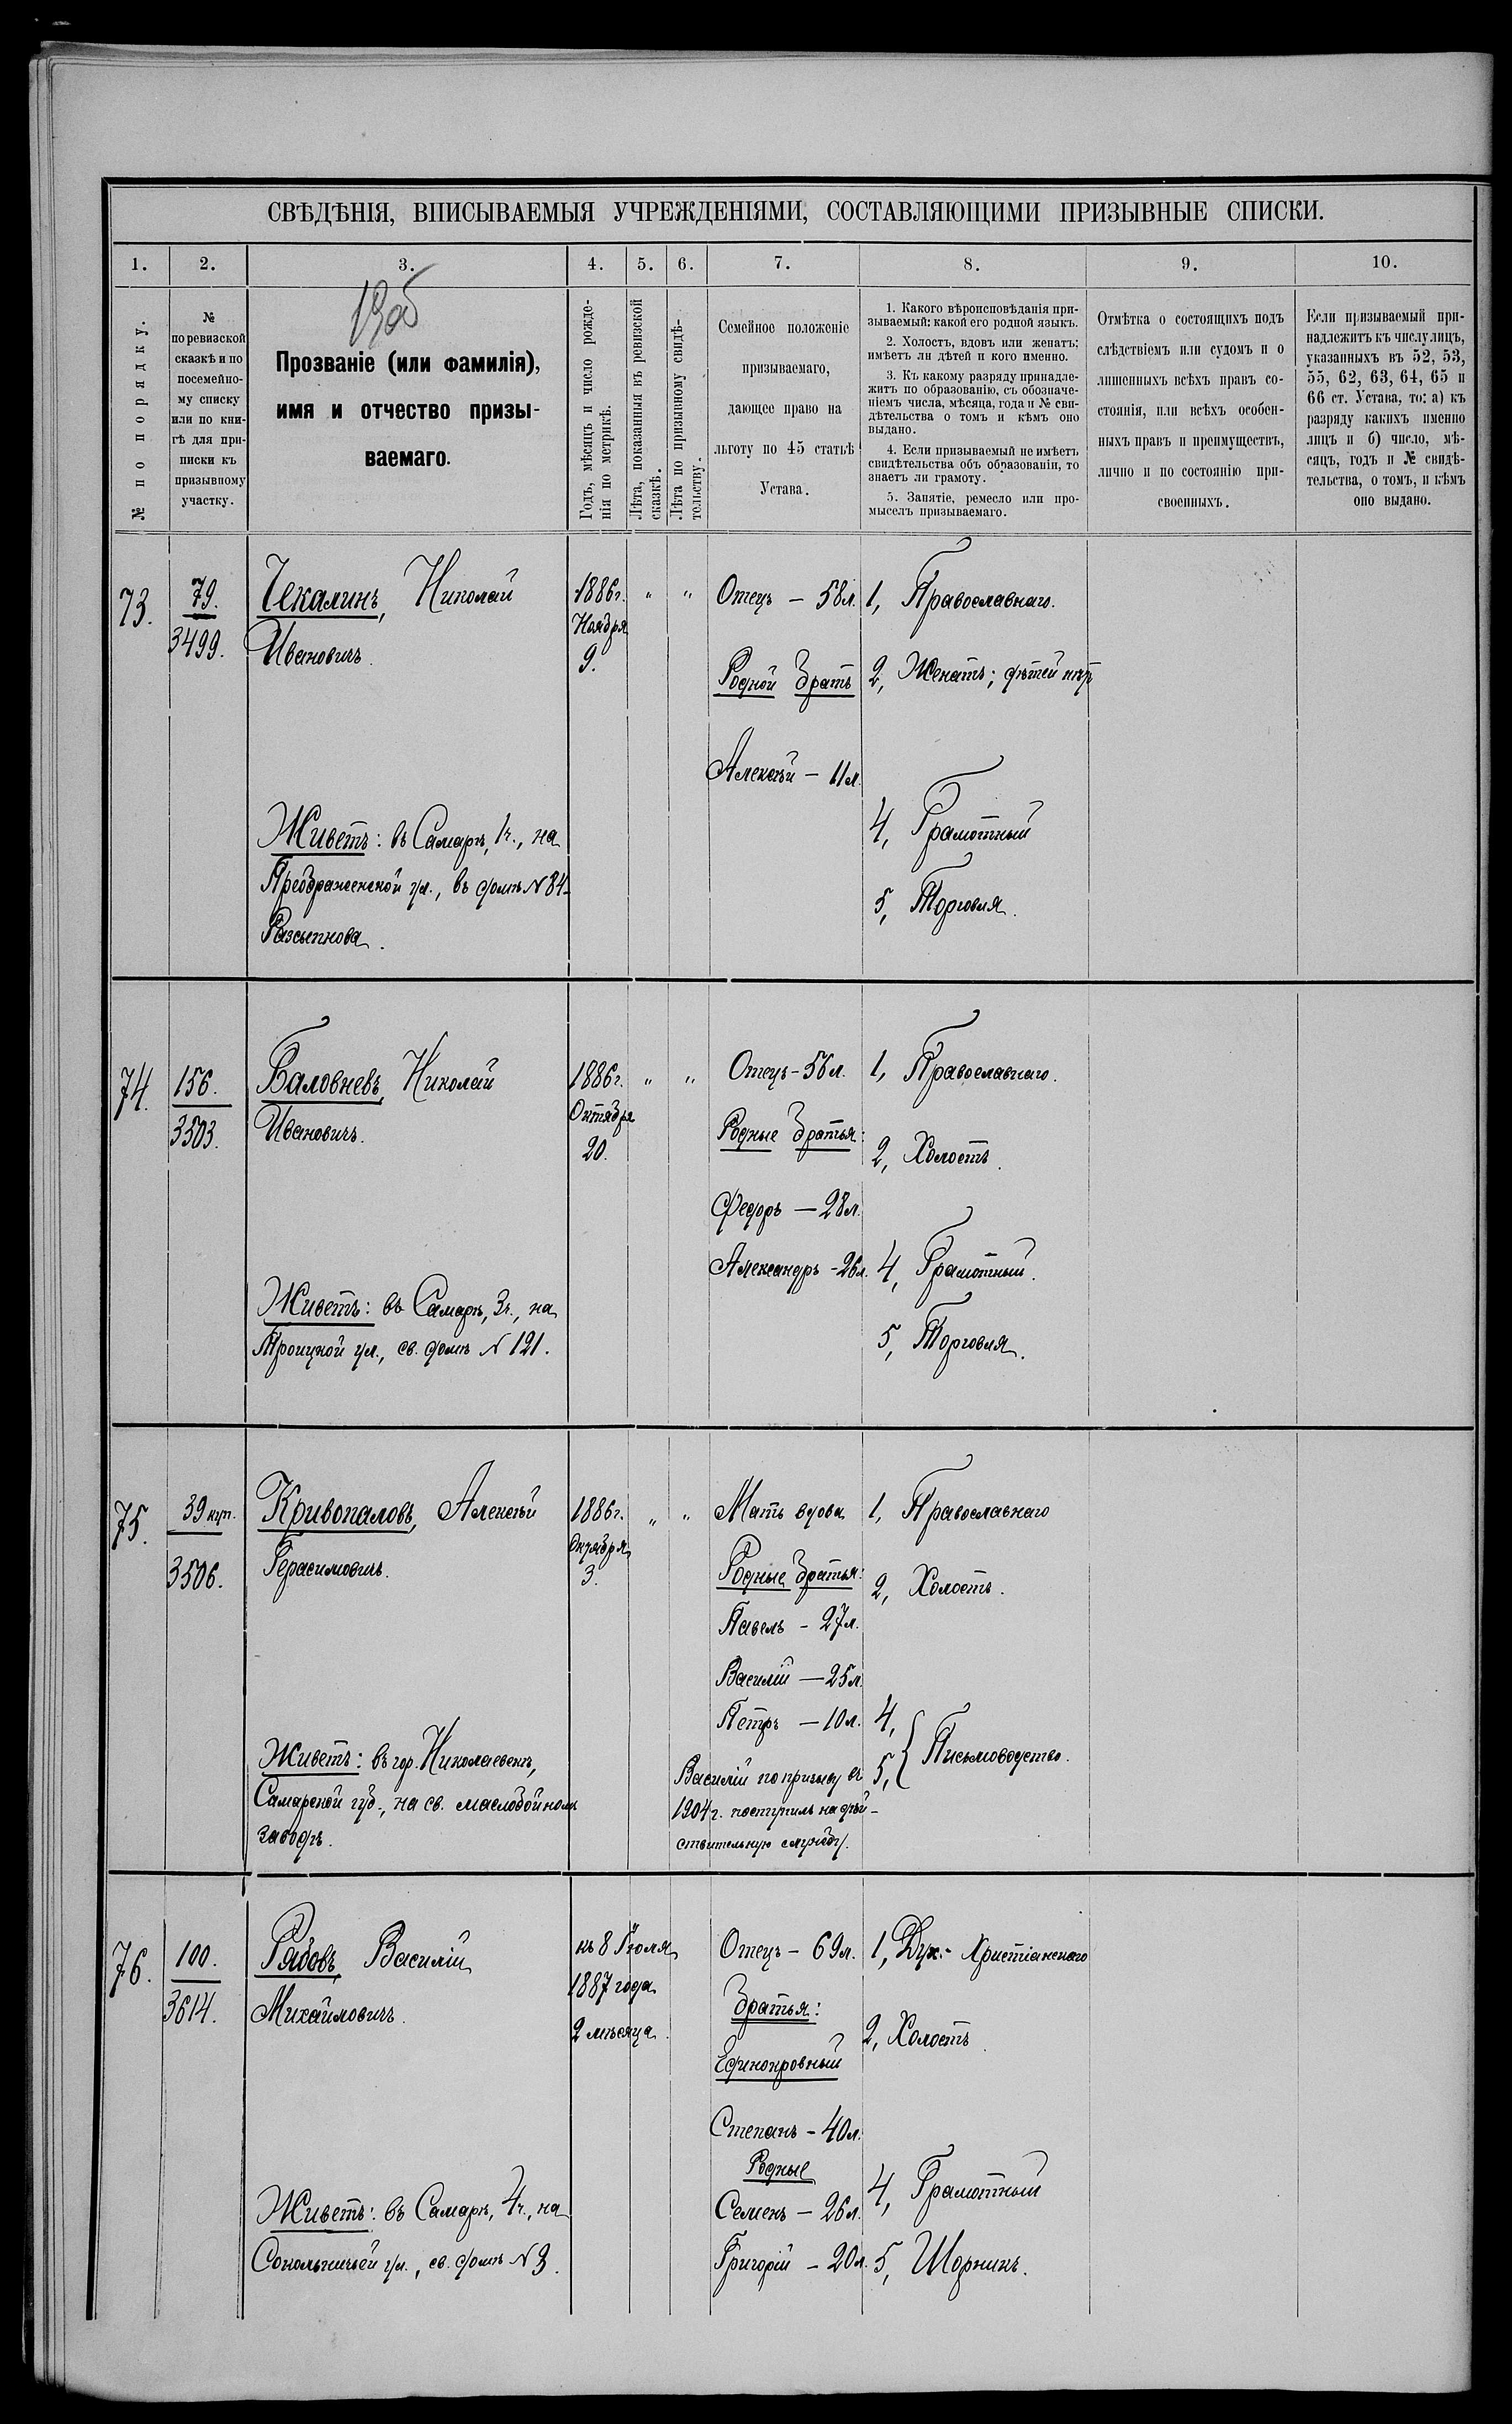 СВѢДѢНІЯ, ВПИСЫВАЕМЫЯ УЧРЕЖДЕНІЯМИ, СОСТАВЛЯЮЩИМИ ПРИЗЫВНЫЕ СПИСКИ.
1. 2. 3. 4. 5. 6. 7. 8. 9. 10.
№ по порядку.
№
по ревизской
сказкѣ и по
посемейно-
му списку
или по кни-
гѣ для при-
писки къ
призывному
участку.
Прозваніе (или фамилія),
имя и отчество призы-
ваемаго.
Годъ, мѣсяцъ и число рожде-
нія по метрикѣ.
Лѣта, показанныя въ ревизской
сказкѣ.
Лѣта по призывному свидѣ-
тельству.
Семейное положеніе
призываемаго,
дающее право на
льготу по 45 статьѣ
Устава.
1. Какого вѣроисповѣданія при-
зываемый: какой его родной языкъ.
2. Холостъ, вдовъ или женатъ:
имѣетъ ли дѣтей и кого именно.
3. Къ какому разряду принадле-
житъ по образованію, съ обозначе-
ніемъ числа, мѣсяца, года и № сви-
дѣтельства о томъ и кѣмъ оно
выдано.
4. Если призываемый не имѣетъ
свидѣтельства объ образованіи, то
знаетъ ли грамоту.
5. Занятіе, ремесло или про-
мыселъ призываемаго.
Отмѣтка о состоящихъ подъ
слѣдствіемъ или судомъ и о
лишенныхъ всѣхъ правъ со-
стоянія, или всѣхъ особен-
ныхъ правъ и преимуществъ,
лично и по состоянію при-
своенныхъ.
Если призываемый при-
надлежитъ къ числу лицъ,
указанныхъ въ 52, 53,
55, 62, 63, 64, 65 и
66 ст. Устава, то: а) къ
разряду какихъ именно
лицъ и б) число, мѣ-
сяцъ, годъ и № свидѣ-
тельства, о томъ, и кѣмъ
оно выдано.
73.
79.
3499.
Чекалинъ, Николай
Ивановичъ.
Живетъ: въ Самарѣ, 1ч., на
Преображенской ул., въ домѣ № 84
Разсыпнова.
1886г.
Ноября
9.
" "
Отецъ - 58л.
Родной братъ
Алексѣй - 11л.
1, Православнаго.
2, Женатъ; дѣтей нѣтъ
4, Грамотный
5, Торговля.
74.
156.
3503.
Баловневъ, Николай
Ивановичъ.
Живетъ: въ Самарѣ, 3ч., на
Троицкой ул., св. домѣ № 121.
1886г.
Октября
20.
" "
Отецъ - 56л.
Родные братья:
Федоръ - 28л.
Александръ - 26л.
1, Православнаго.
2, Холостъ.
4, Грамотный.
5, Торговля.
75.
39 куп.
3506.
Кривопаловъ, Алексѣй
Герасимовичъ.
Живетъ: въ гор. Николаевскѣ,
Самарской губ., на св. маслобойномъ
заводѣ.
1886г.
Октября
3.
" "
Мать вдова
Родные братья:
Павелъ - 27л.
Василій - 25л.
Петръ - 10л.
Василій по призыву въ
1904г. поступилъ на дѣй-
ствительную службу.
1, Православнаго
2, Холостъ.
4,
5, } Письмоводство.
76.
100.
3614.
Рябовъ, Василій
Михайловичъ.
Живетъ: въ Самарѣ, 4ч., на
Сокольничьей ул., св. домѣ № 3.
къ 8 Іюля
1887 года
2 мѣсяца.
Отецъ - 69л.
Братья:
Единокровный
Степанъ - 40л.
Родные
Семенъ - 26л.
Григорій - 20л.
1, Дух.- Христіанскаго
2, Холостъ.
4, Грамотный
5, Шорникъ.